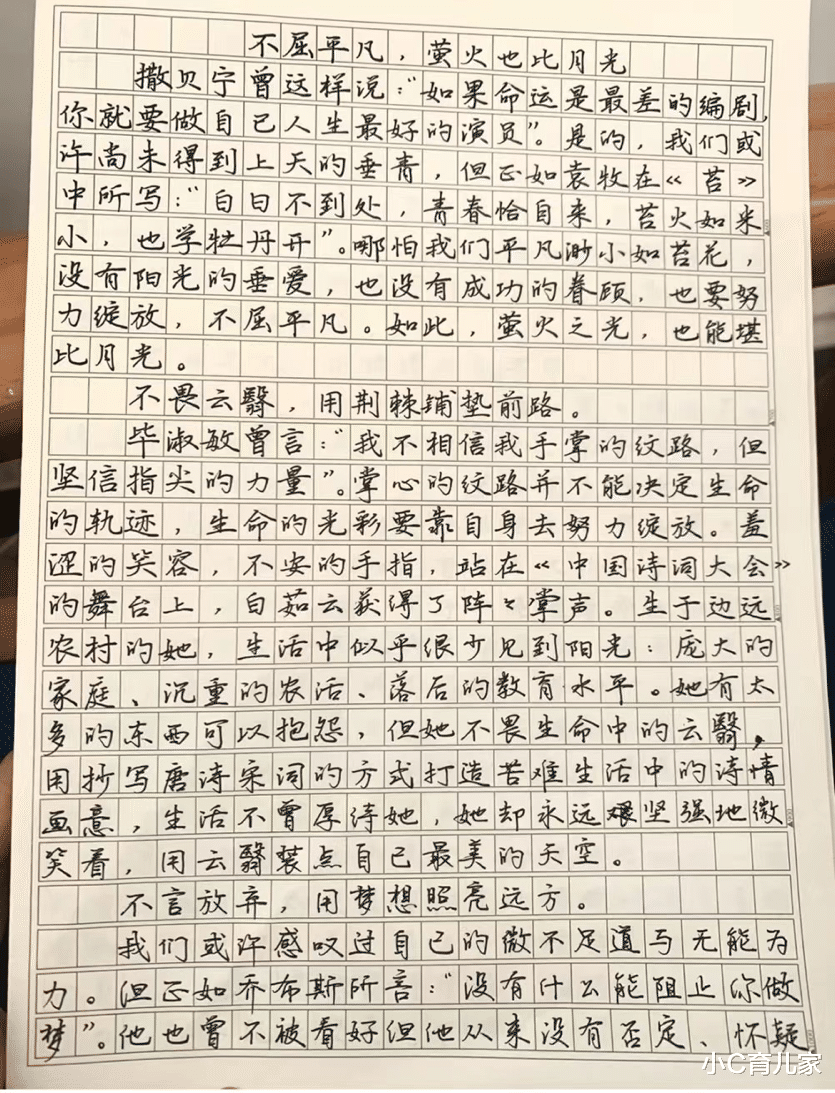 不屈平凡，萤火也比月光
撒贝宁曾这样说："如果命运是最差的编剧,
你就要做自己人生最好的演员"。是的，我们或
许尚未得到上天的垂青，但正如袁牧在《苔》
中所写："白日不到处，青春恰自来，苔火如米
小，也学牡丹开"。哪怕我们平凡渺小如苔花，
没有阳光的垂爱，也没有成功的眷顾，也要努
力绽放，不屈平凡。如此，萤火之光，也能堪
比月光。
不畏云翳，用荆棘铺垫前路。
毕淑敏曾言："我不相信我手掌的纹路，但
坚信指尖的力量"。掌心的纹路并不能决定生命
的轨迹，生命的光彩要靠自身去努力绽放。羞
涩的笑容，不安的手指，站在《中国诗词大会》
的舞台上，白茹云获得了阵々掌声。生于边远
农村的她，生活中似乎很少见到阳光：庞大的
家庭、沉重的农活、落后的教育水平。她有太
多的东西可以抱怨，但她不畏生命中的云翳，
用抄写唐诗宋词的方式打造苦难生活中的诗情
画意，生活不曾厚待她，她却永远坚强地微
笑看，用云翳装点自己最美的天空。
不言放弃，用梦想照亮远方。
我们或许感叹过自己的微不足道与无能为
力。但正如乔布斯所言："没有什么能阻止你做
梦"。他也曾不被看好但他从来没有否定、怀疑
小C育儿家